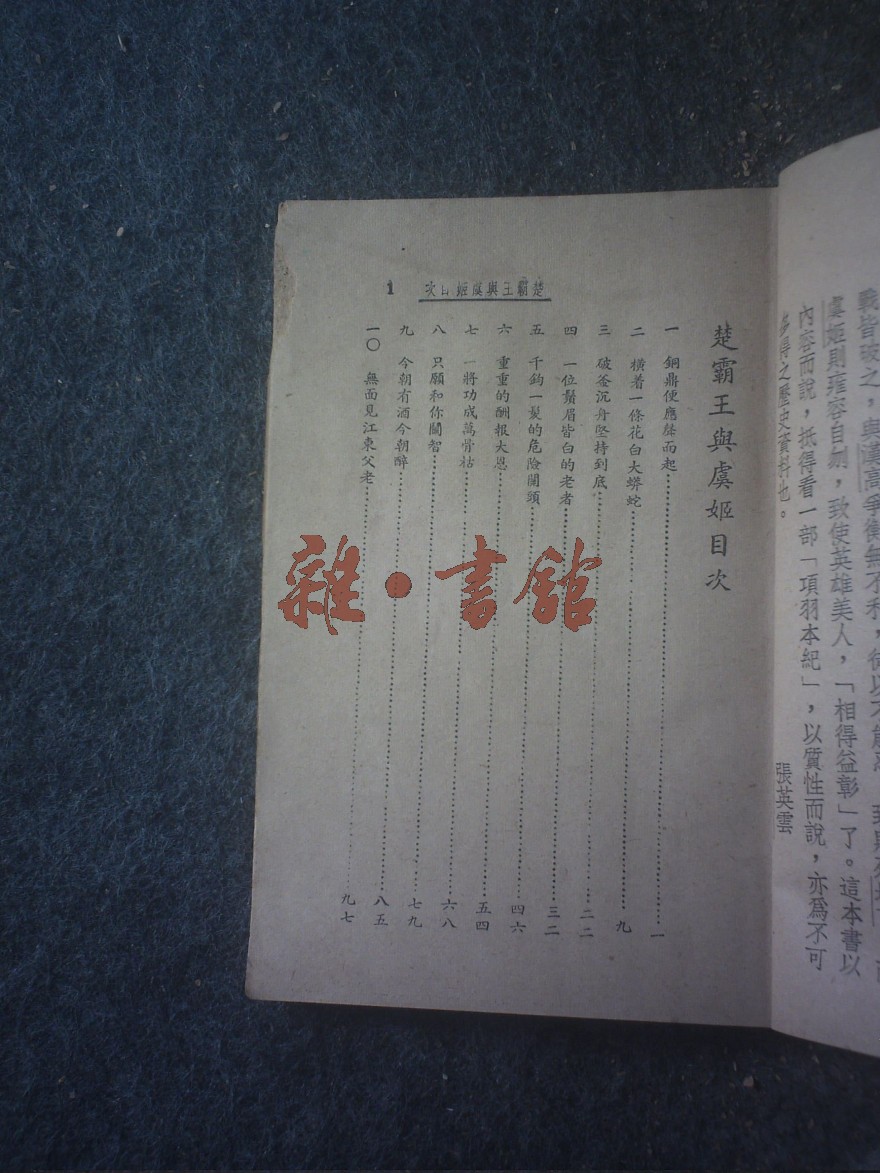 戰皆破之，與漢高爭衡無不利，徒以不能忍
虞姬則雍容自刎，致使英雄美人，「相得益彰」了。這本書以
內容而說，抵得看一部「項羽本紀」，以質性而說，亦爲不可
多得之歷史資料也。
張英雲
楚霸王與虞姬目次 1
楚霸王與虞姬目次
一 銅鼎便應聲而起 一
二 橫着一條花白大蟒蛇 九
三 破釜沉舟堅持到底 二二
四 一位鬚眉皆白的老者 三二
五 千鈞一髮的危險關頭 四六
六 重重的酬報大恩 五四
七 一將功成萬骨枯 六八
八 只願和你鬭智 七九
九 今朝有酒今朝醉 八五
一〇 無面見江東父老 九七
雜·書館